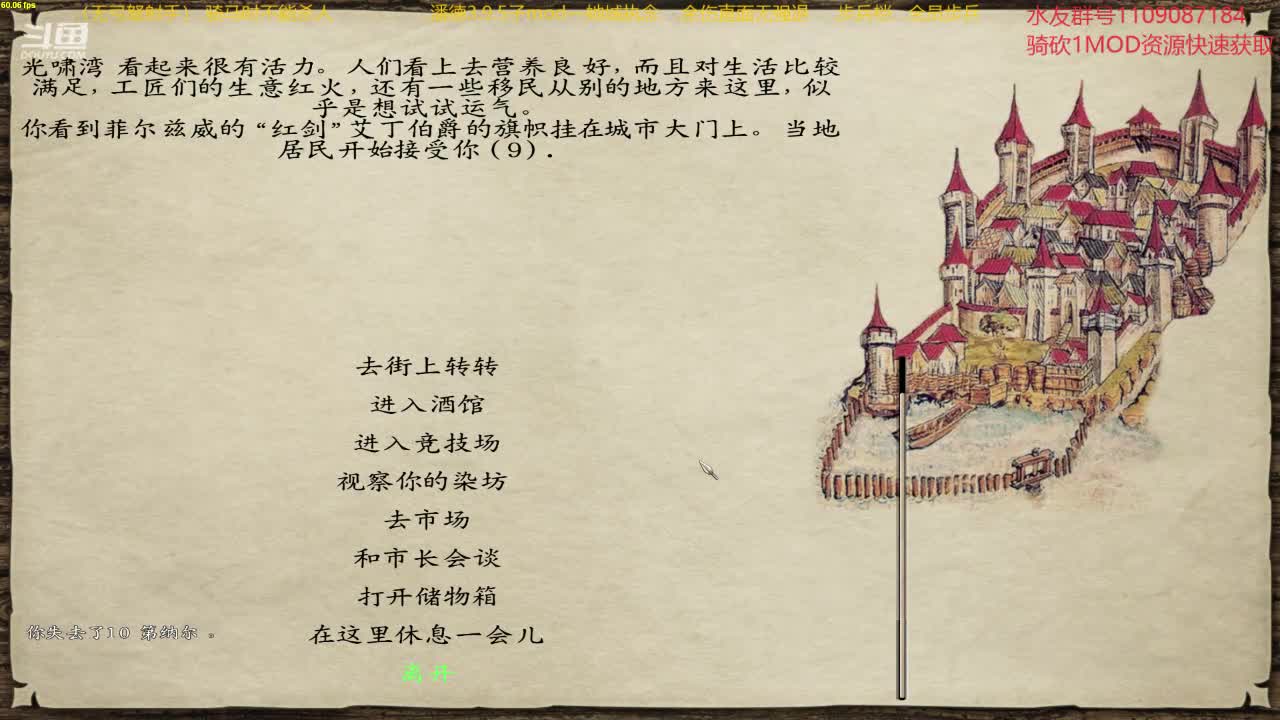 60.06 fps
水友群号1109087184
骑砍1MOD资源快速获取
斗鱼
DOUYU.COM
光啸湾 看起来很有活力。人们看上去营养良好，而且对生活比较
满足，工匠们的生意红火，还有一些移民从别的地方来这里，似
乎是想试试运气。
你看到菲尔兹威的“红剑”艾丁伯爵的旗帜挂在城市大门上。 当地
居民开始接受你（9）.
去街上转转
进入酒馆
进入竞技场
视察你的染坊
去市场
和市长会谈
打开储物箱
在这里休息一会儿
离开
你失去了10 第纳尔 。